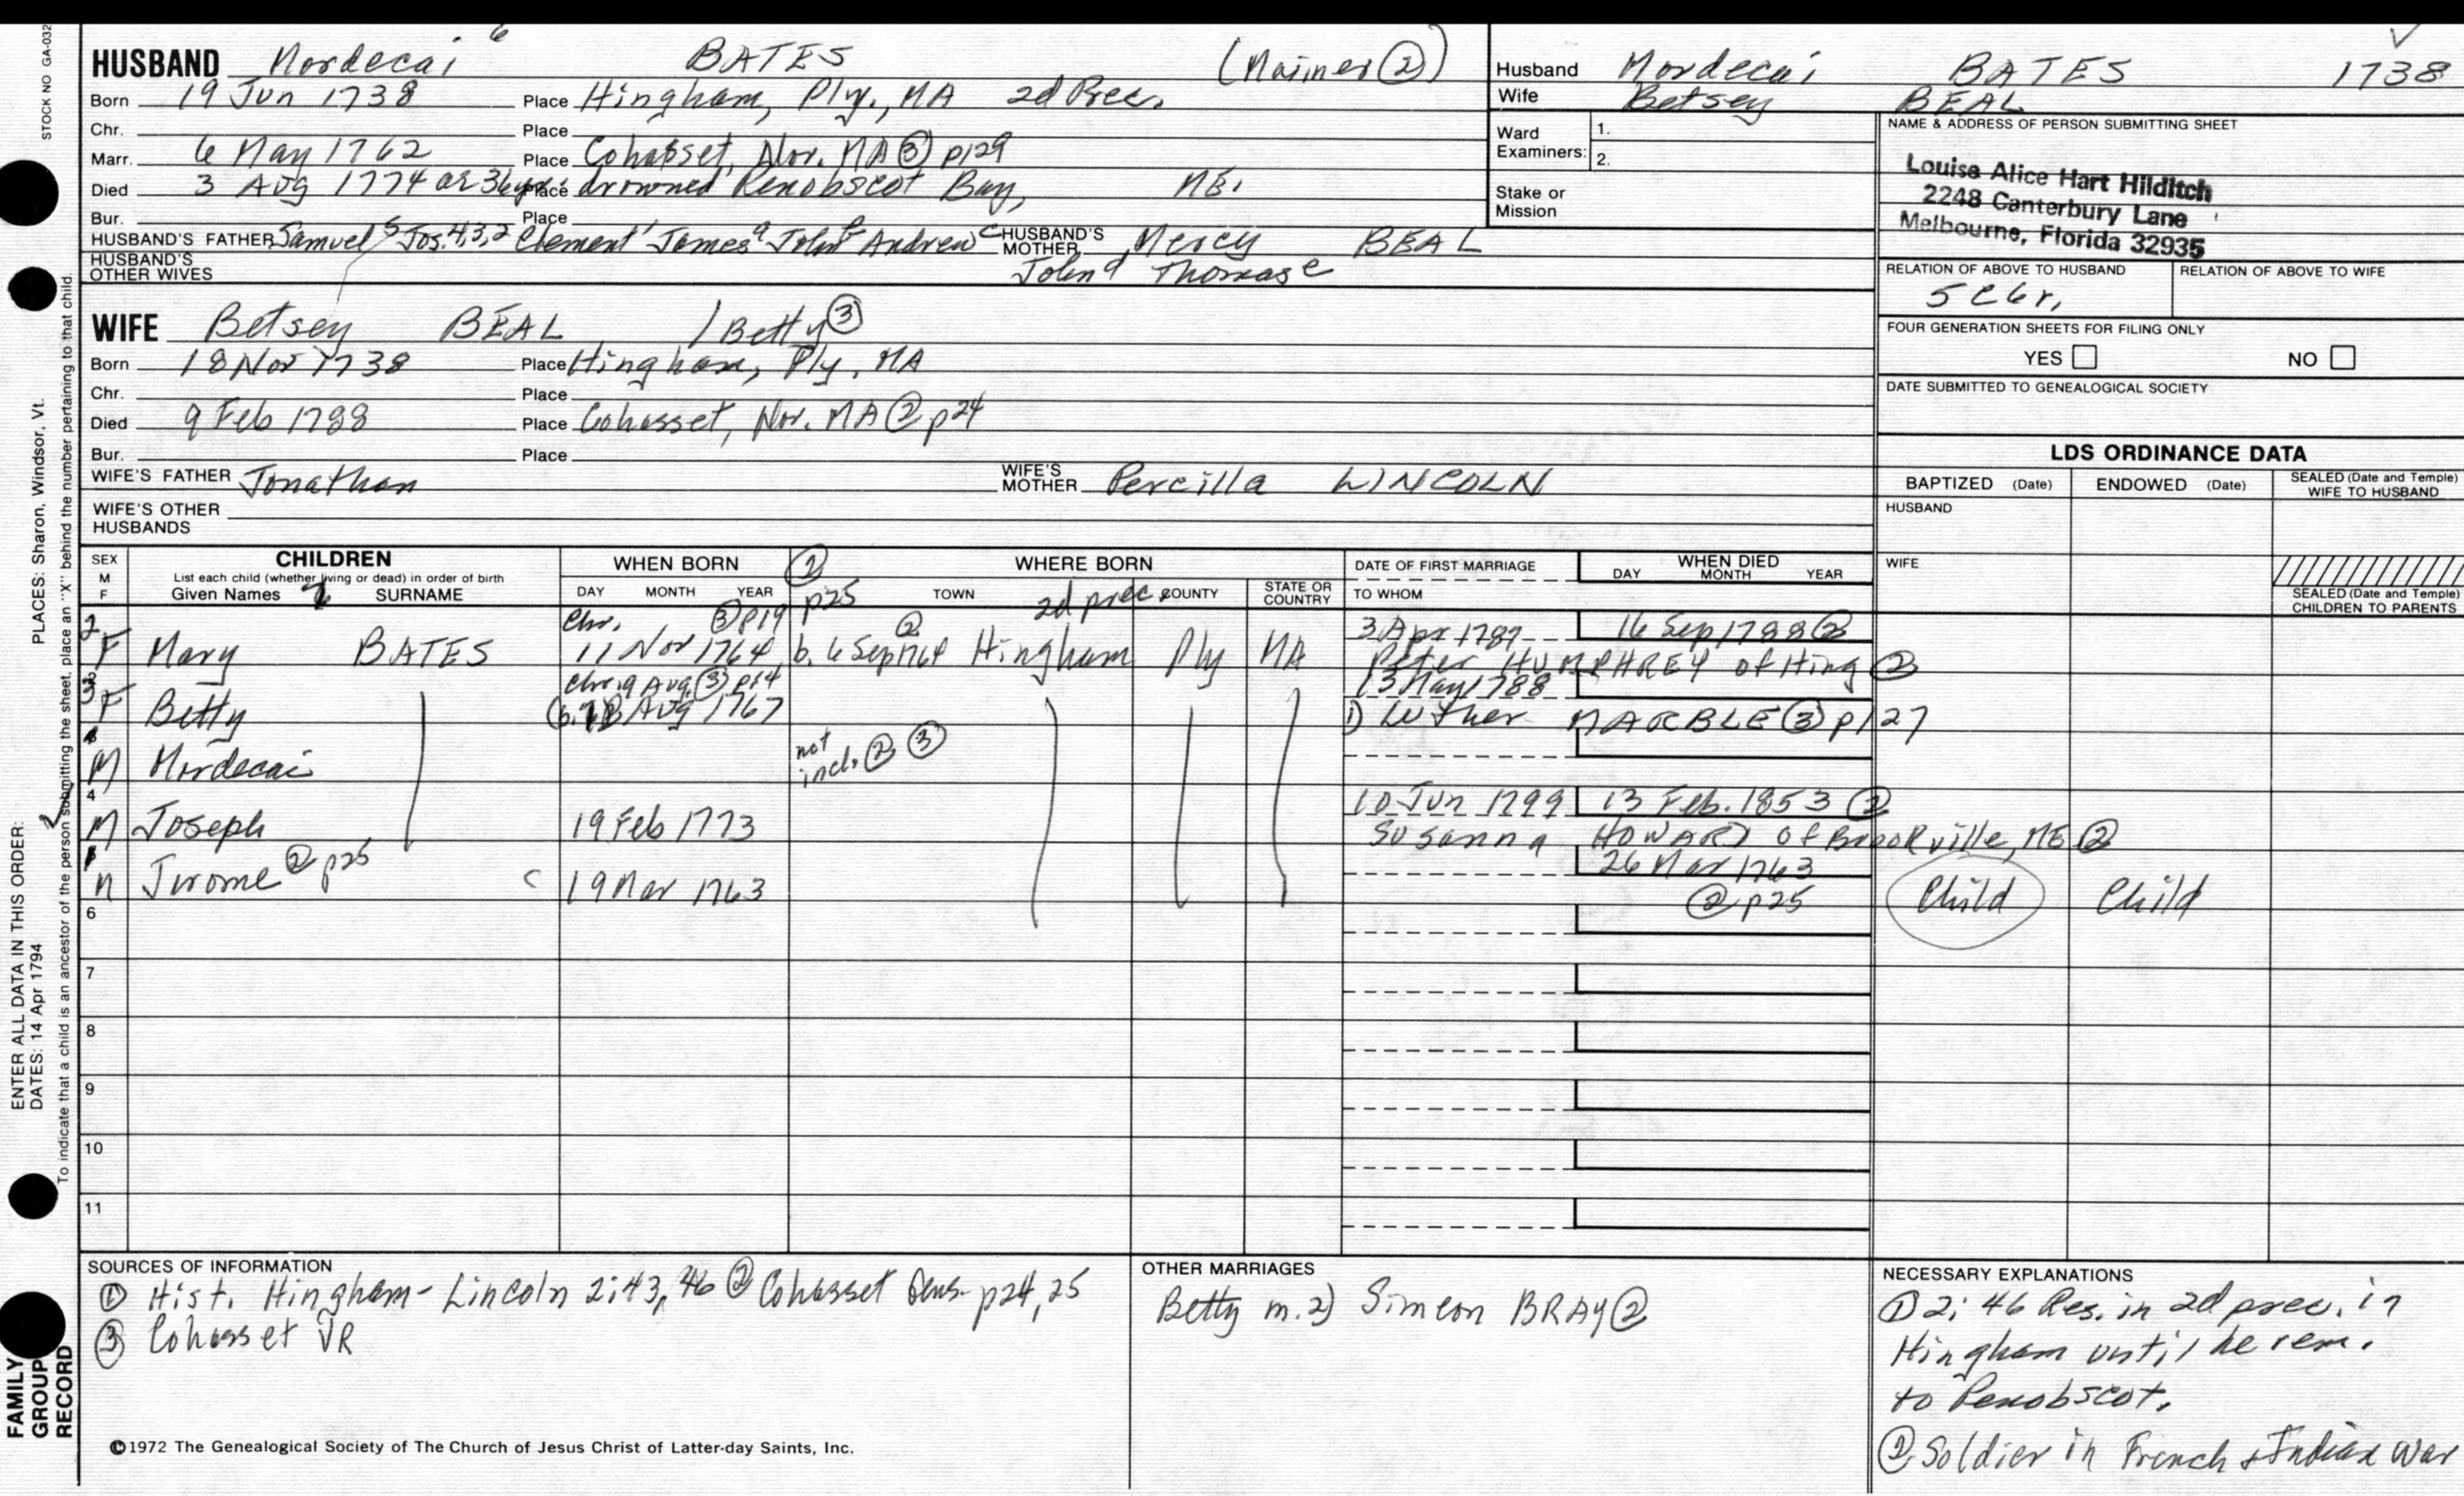 STOCK NO GA-032
HUSBAND Mordecai 6 BATES (Mainer ②)
Born 19 Jun 1738 Place Hingham, Ply., MA 2d Prec.
Chr. Place
Marr. 6 May 1762 Place Cohasset, Nor. MA ③ p129
Died 3 Aug 1774 ae 36 yrs. Place drowned Penobscot Bay, ME.
Bur. Place
HUSBAND'S FATHER Samuel 5 Jos. 4,3,2 Clement 1 James a John b Andrew c HUSBAND'S MOTHER Mercy BEAL
HUSBAND'S OTHER WIVES John d Thomas e
WIFE Betsey BEAL / Betty ③
Born 18 Nov 1738 Place Hingham, Ply, MA
Chr. Place
Died 9 Feb 1788 Place Cohasset, Nor. MA ② p24
Bur. Place
WIFE'S FATHER Jonathan WIFE'S MOTHER Percilla LINCOLN
WIFE'S OTHER HUSBANDS
Husband Mordecai BATES 1738
Wife Betsey BEAL
Ward Examiners: 1.
2.
Stake or Mission
NAME & ADDRESS OF PERSON SUBMITTING SHEET
Louise Alice Hart Hilditch
2248 Canterbury Lane
Melbourne, Florida 32935
RELATION OF ABOVE TO HUSBAND RELATION OF ABOVE TO WIFE
5 C 6 r.
FOUR GENERATION SHEETS FOR FILING ONLY
YES NO
DATE SUBMITTED TO GENEALOGICAL SOCIETY
LDS ORDINANCE DATA
BAPTIZED (Date) ENDOWED (Date) SEALED (Date and Temple) WIFE TO HUSBAND
HUSBAND
WIFE
SEALED (Date and Temple) CHILDREN TO PARENTS
SEX M F CHILDREN WHEN BORN WHERE BORN DATE OF FIRST MARRIAGE WHEN DIED
List each child (whether living or dead) in order of birth
Given Names SURNAME DAY MONTH YEAR TOWN COUNTY STATE OR COUNTRY TO WHOM DAY MONTH YEAR
② p25 2d prec.
2 Chr. ③ p19 ② 3 Apr 1787 16 Sep 1788 ②
F Mary BATES 11 Nov 1764 b. 6 Sep 1764 Hingham Ply MA Peter HUMPHREY of Hing ②
3 Chr. 9 Aug. ③ p14 13 May 1788
F Betty Aug 1767 1) Luther MARBLE ③ p127
M Mordecai not incl. ② ③
4 10 Jun 1799 13 Feb. 1853 ②
M Joseph 19 Feb 1773 Susanna HOWARD of Brookville, ME ②
1 26 Mar 1763
M Jirome ② p25 C 19 Mar 1763 ② p25 Child Child
6
7
8
9
10
11
SOURCES OF INFORMATION
① Hist. Hingham - Lincoln 2:43, 46 ② Cohasset Gens- p24, 25
③ Cohasset VR
OTHER MARRIAGES
Betty m. 2) Simeon BRAY ②
NECESSARY EXPLANATIONS
① 2:46 Res. in 2d prec. in
Hingham until he rem.
to Penobscot.
② Soldier in French & Indian War
©1972 The Genealogical Society of The Church of Jesus Christ of Latter-day Saints, Inc.
FAMILY GROUP RECORD
ENTER ALL DATA IN THIS ORDER:
DATES: 14 Apr 1794 PLACES: Sharon, Windsor, Vt.
To indicate that a child is an ancestor of the person submitting the sheet, place an "X" behind the number pertaining to that child.